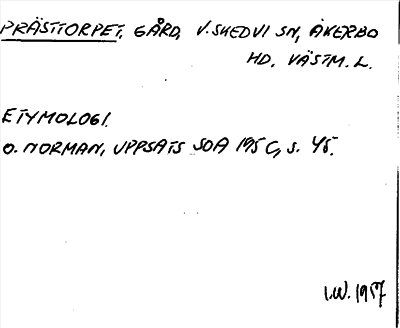 PRÄSTTORPET, GÅRD, V. SKEDVI SN, ÅKERBO
HD, VÄSTM. L.
ETYMOLOGI.
O. NORMAN, UPPSATS SOA 195 C, S. 45.
I.W. 1957